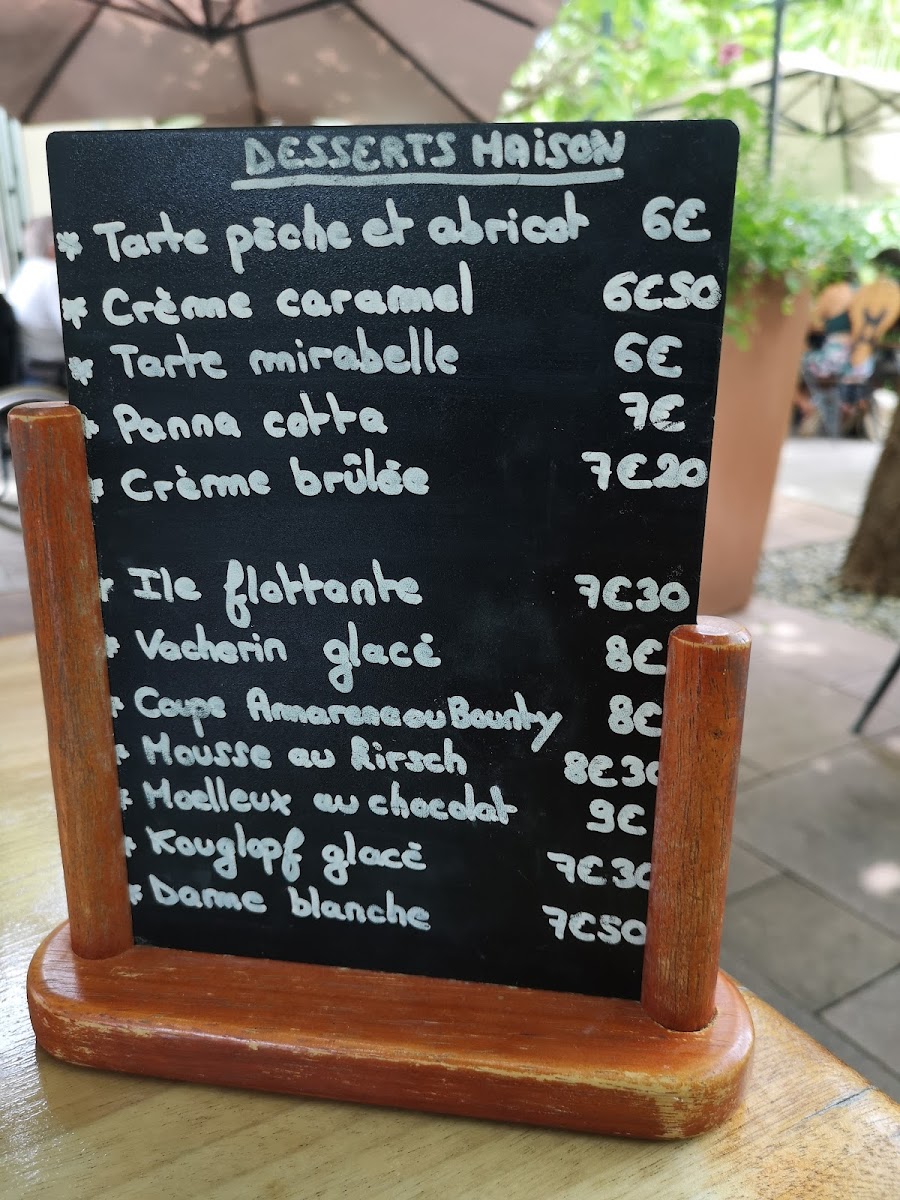 DESSERTS MAISON
* Tarte pêche et abricot 6€
* Crème caramel 6€50
* Tarte mirabelle 6€
* Panna cotta 7€
* Crème brûlée 7€20
* Ile flottante 7€30
* Vacherin glacé 8€
* Coupe Amarena ou Bounty 8€
* Mousse au kirsch 8€30
* Moelleux au chocolat 9€
* Kouglopf glacé 7€30
* Dame blanche 7€50